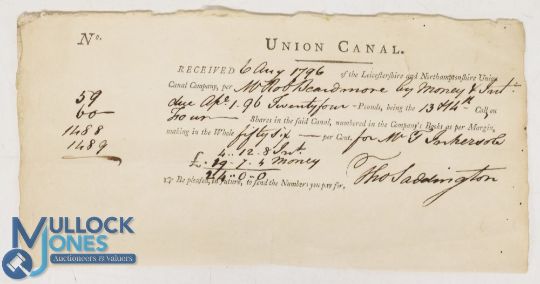 No.
UNION CANAL.
RECEIVED 6 Aug 1796 of the Leicestershire and Northamptonshire Union
Canal Company, per Mr Rob Beardmore by Money & Int.
due Apl. 1. 96 Twentyfour Pounds, being the 13 & 14th Call on
Four Shares in the said Canal, numbered in the Company's Books as per Margin,
making in the Whole fifty six per Cent. for Mr T Inkersole
59
60
1488
1489
4..12..8 Int.
£ 19..7..4 Money
24..0..0
☞ Be pleased, in future, to send the Numbers you pay for.
Tho Saddington
MULLOCK
JONES
Auctioneers & valuers